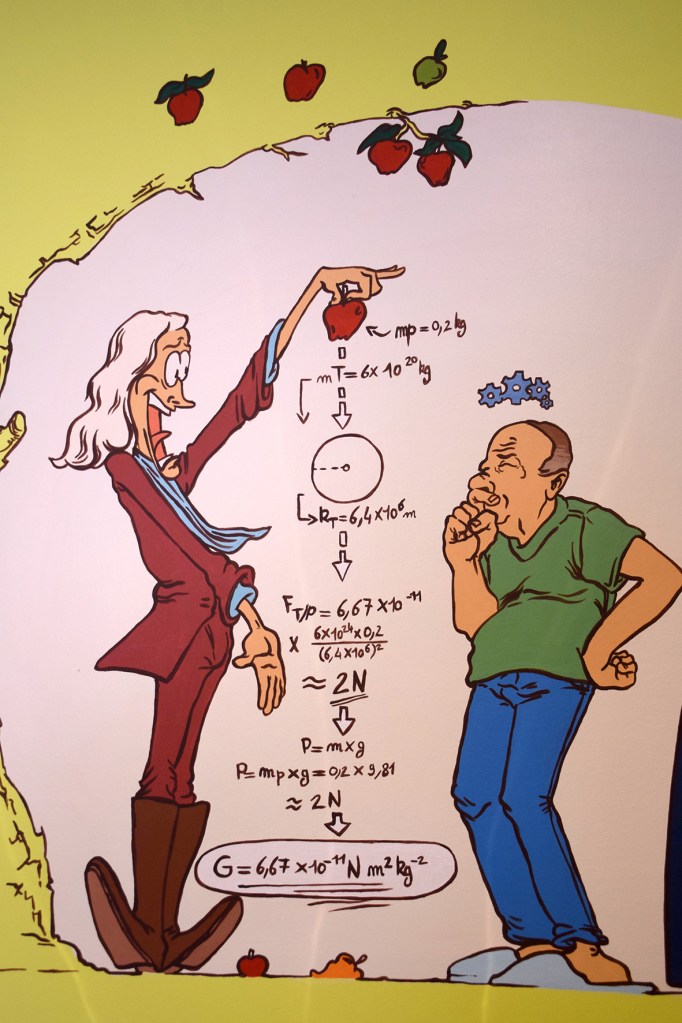 mp = 0,2 kg
mT = 6 x 10²⁰ kg
RT = 6,4 x 10⁶ m
F T/p = 6,67 x 10⁻¹¹
x 6 x 10²⁴ x 0,2
(6,4 x 10⁶)²
≈ 2N
P = m x g
P = mp x g = 0,2 x 9,81
≈ 2N
G = 6,67 x 10⁻¹¹ N m² kg⁻²